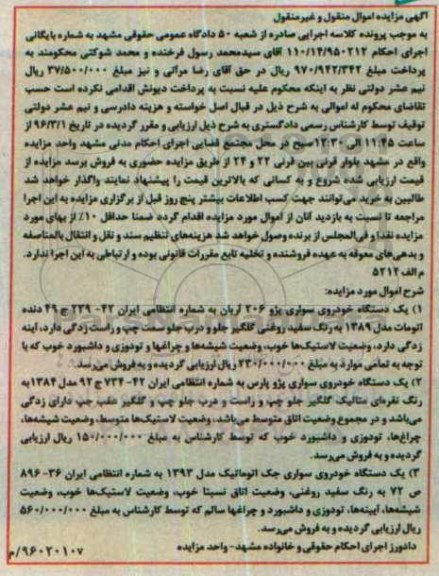 آگهی مزایده اموال منقول و غیرمنقول
به موجب پرونده کلاسه اجرایی صادره از شعبه ۵۰ دادگاه عمومی حقوقی مشهد به شماره بایگانی
اجرای احکام ۱۱۰/۱۴/۹۵۰۲۱۲ آقای سیدمحمد رسول فرخنده و محمد شوکتی محکومند به
پرداخت مبلغ ۹۷۰/۹۴۲/۳۴۲ ریال در حق آقای رضا مرآتی و نیز مبلغ ۳۷/۵۰۰/۰۰۰ ریال
نیم عشر دولتی نظر به اینکه محکوم علیه نسبت به پرداخت دیونش اقدامی نکرده است حسب
تقاضای محکوم له اموالی به شرح ذیل در قبال اصل خواسته و هزینه دادرسی و نیم عشر دولتی
توقیف توسط کارشناس رسمی دادگستری به شرح ذیل ارزیابی و مقرر گردیده در تاریخ ۹۶/۳/۱ از
ساعت ۱۱:۴۵ الی ۱۲:۳۰ صبح در محل مجتمع قضایی اجرای احکام مدنی مشهد واحد مزایده
واقع در مشهد بلوار قرنی بین قرنی ۲۲ و ۲۴ از طریق مزایده حضوری به فروش برسد مزایده از
قیمت ارزیابی شده شروع و به کسانی که بالاترین قیمت را پیشنهاد نمایند واگذار خواهد شد
طالبین به خرید می‌توانند جهت کسب اطلاعات بیشتر پنج روز قبل از برگزاری مزایده به این اجرا
مراجعه تا نسبت به بازدید آنان از اموال مورد مزایده اقدام گردد ضمنا حداقل ۱۰٪ از بهای مورد
مزایده نقدا و فی‌المجلس از برنده وصول خواهد شد هزینه‌های تنظیم سند و نقل و انتقال بالمناصفه
و بدهی‌های معوقه به عهده فروشنده و تخلیه تابع مقررات قانونی بوده و ارتباطی به این اجرا ندارد.
م الف ۵۲۱۴
شرح اموال مورد مزایده:
۱) یک دستگاه خودروی سواری پژو ۲۰۶ آریان به شماره انتظامی ایران ۴۲- ۲۳۹ ج ۴۹ دنده
اتومات مدل ۱۳۸۹ به رنگ سفید روغنی گلگیر جلو و درب جلو سمت چپ و راست زدگی دارد، آینه
زدگی دارد، وضعیت لاستیک‌ها خوب، وضعیت شیشه‌ها و چراغها و تودوزی و داشبورد خوب که با
توجه به تمامی موارد به مبلغ ۲۳۰/۰۰۰/۰۰۰ ریال ارزیابی گردیده و به فروش می‌رسد.
۲) یک دستگاه خودروی سواری پژو پارس به شماره انتظامی ایران ۴۲- ۷۳۴ ج ۹۲ مدل ۱۳۸۴ به
رنگ نقره‌ای متالیک گلگیر جلو چپ و راست و درب جلو چپ و گلگیر عقب چپ دارای زدگی
می‌باشد و در مجموع وضعیت اتاق متوسط می‌باشد، وضعیت لاستیک‌ها متوسط، وضعیت شیشه‌ها،
چراغ‌ها، تودوزی و داشبورد خوب که توسط کارشناس به مبلغ ۱۵۰/۰۰۰/۰۰۰ ریال ارزیابی
گردیده و به فروش می‌رسد.
۳) یک دستگاه خودروی سواری جک اتوماتیک مدل ۱۳۹۳ به شماره انتظامی ایران ۳۶- ۸۹۶
ص ۷۲ به رنگ سفید روغنی، وضعیت اتاق نسبتا خوب، وضعیت لاستیک‌ها خوب، وضعیت
شیشه‌ها، آیینه‌ها، تودوزی و داشبورد و چراغها سالم که توسط کارشناس به مبلغ ۵۶۰/۰۰۰/۰۰۰
ریال ارزیابی گردیده و به فروش می‌رسد.
دادورز اجرای احکام حقوقی و خانواده مشهد- واحد مزایده
۹۶۰۲۰۱۰۷/م